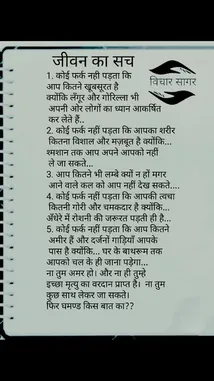 जीवन का सच
विचार सागर
1. कोई फर्क नही पड़ता कि
आप कितने खूबसूरत है
क्योंकि लँगूर और गोरिल्ला भी
अपनी ओर लोगों का ध्यान आकर्षित
कर लेते हैं..
2. कोई फर्क नहीं पड़ता कि आपका शरीर
कितना विशाल और मज़बूत है क्योंकि...
श्मशान तक आप अपने आपको नहीं
ले जा सकते...
3. आप कितने भी लम्बे क्यों न हों मगर
आने वाले कल को आप नहीं देख सकते....
4. कोई फर्क नहीं पड़ता कि आपकी त्वचा
कितनी गोरी और चमकदार है क्योंकि...
अँधेरे में रोशनी की जरूरत पड़ती ही है...
5. कोई फर्क नहीं पड़ता कि आप कितने
अमीर हैं और दर्जनों गाड़ियाँ आपके
पास है क्योंकि... घर के बाथरूम तक
आपको चल के ही जाना पड़ेगा...
ना तुम अमर हो। और ना ही तुम्हे
इच्छा मृत्यु का वरदान प्राप्त है। ना तुम
कुछ साथ लेकर जा सकते।
फिर घमण्ड किस बात का??